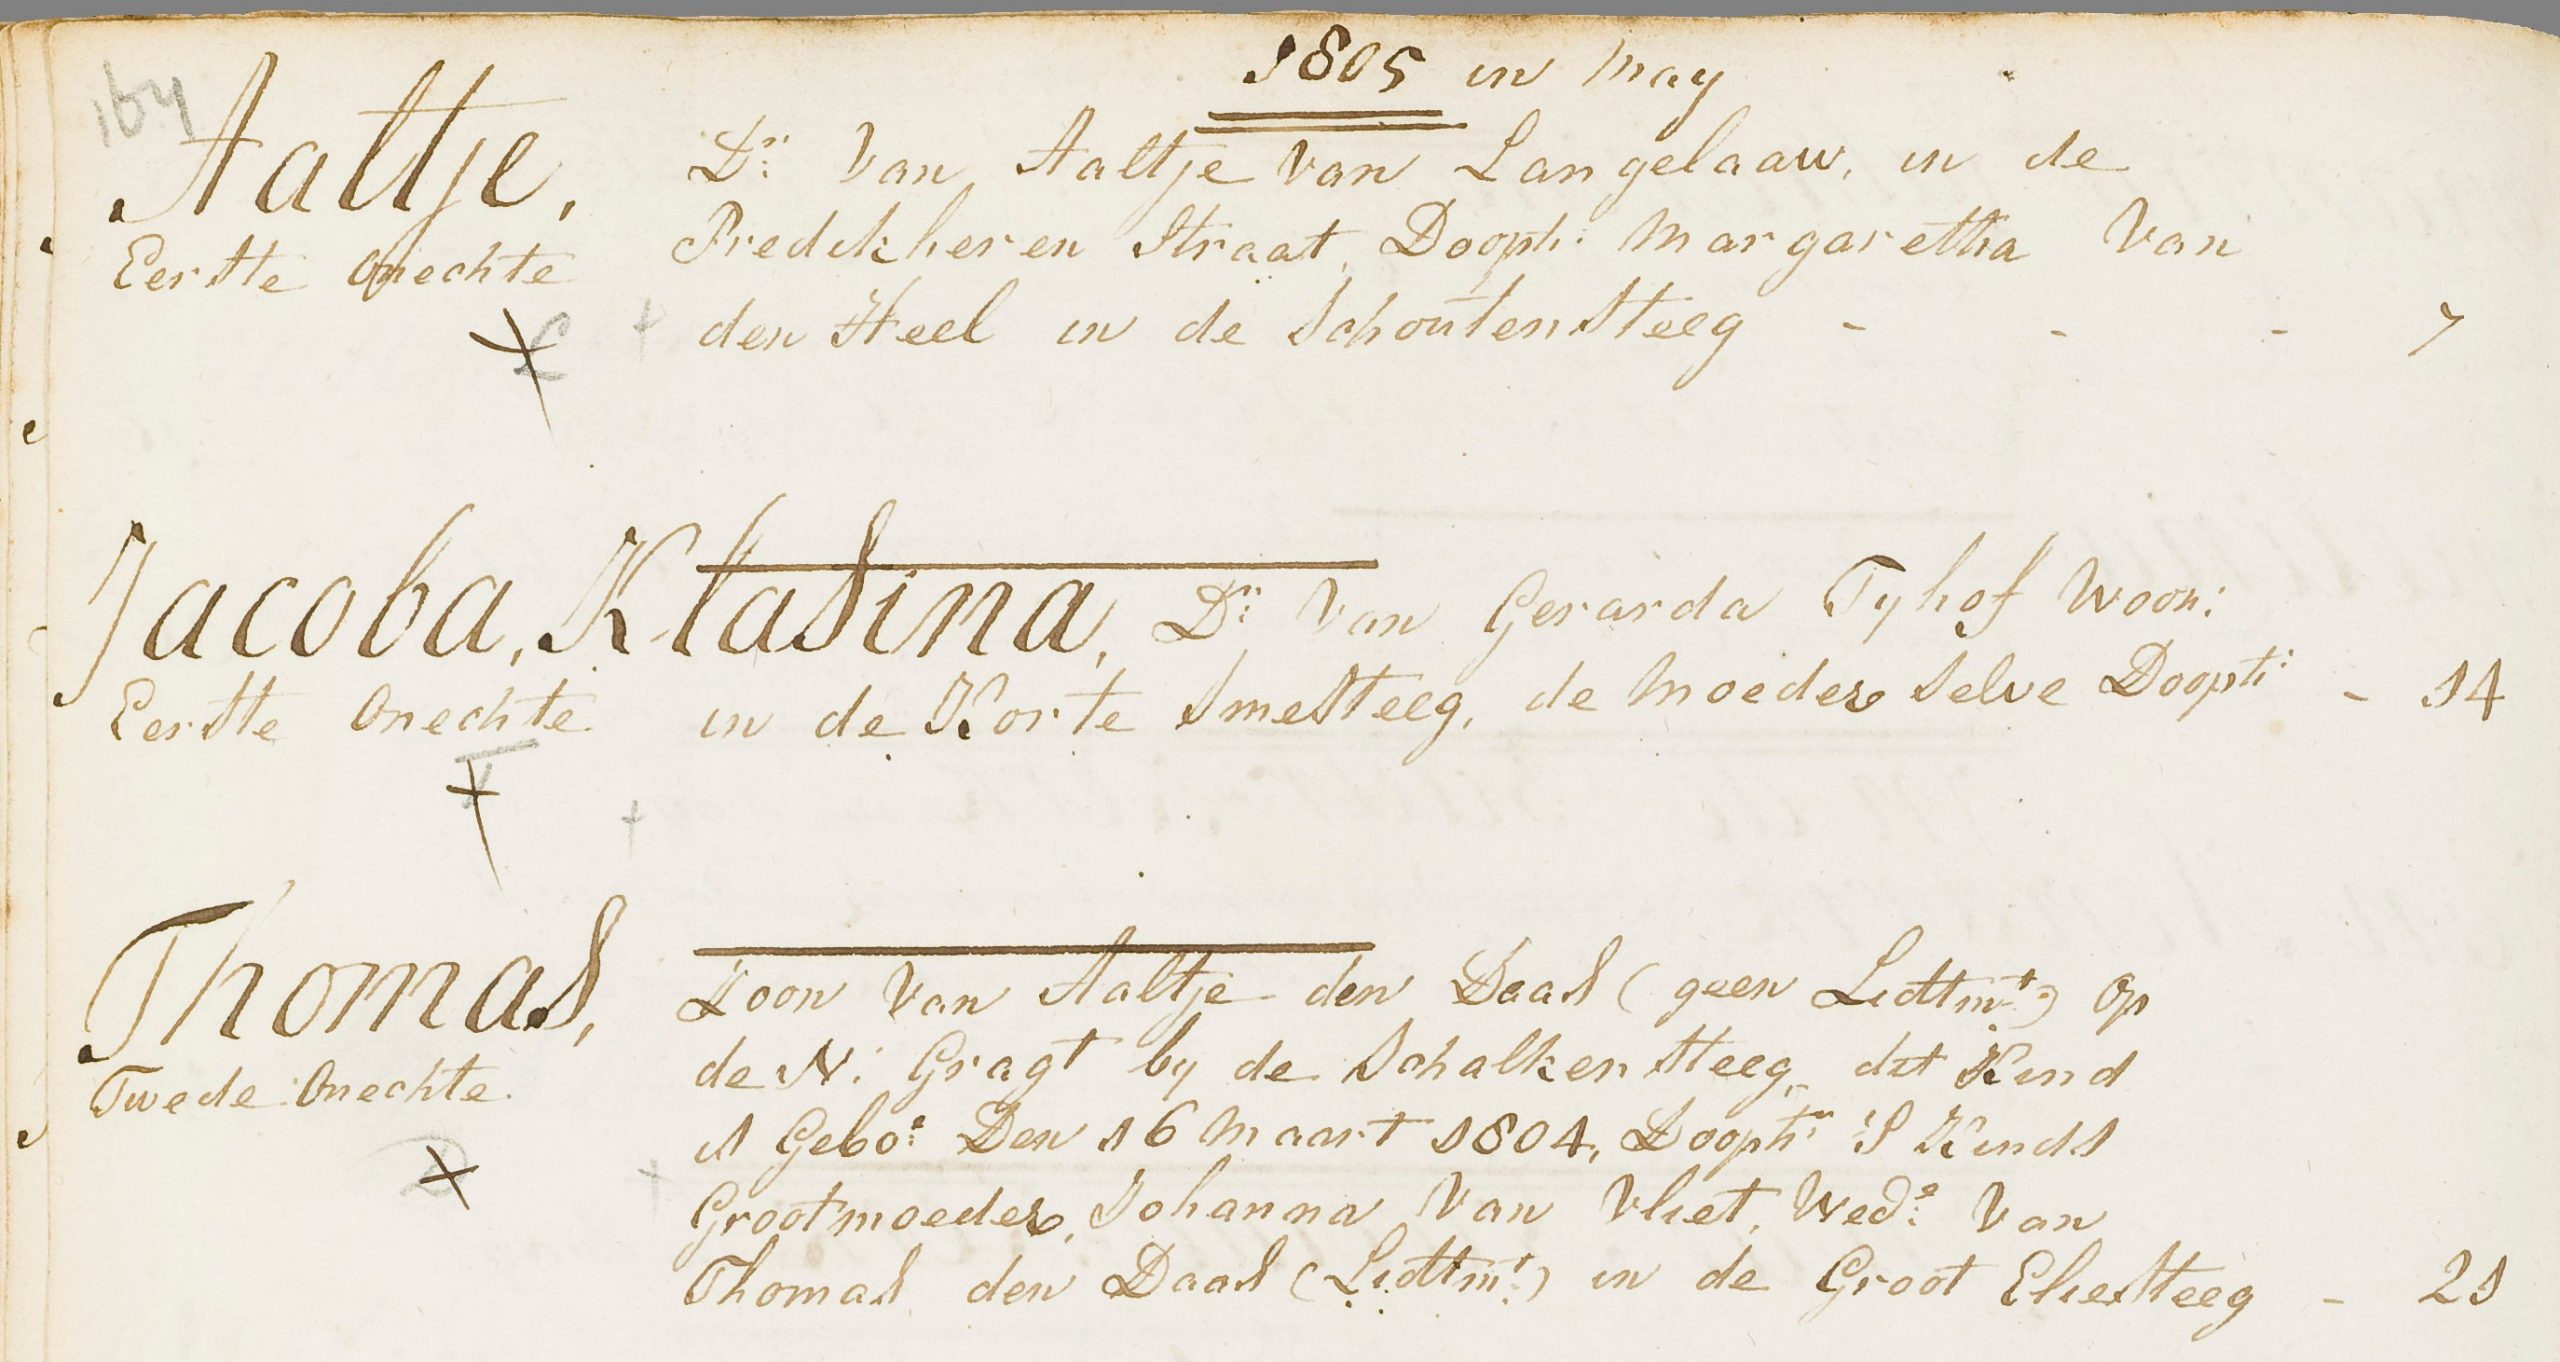 164
1805 in May
Aaltje, Dr: Van Aaltje Van Langelaaw, in de
Eerste Onechte Predikheren Straat, Dooph: Margaretha Van
den Heel in de Schoutensteeg - - - 7
Jacoba, Klasina, Dr: Van Gerarda Tyhof Woon:
Eerste Onechte in de Korte Smesteeg, de Moeder Selve Dooph: - 14
Thomas, Zoon Van Aaltje den Daas (geen Lidtmt:) Op
Twede Onechte de N: Gragt by de Schalkensteeg, dit Kind
is Gebo:e Den 16 Maart 1804, Dooph:r 'S Kinds
Grootmoeder, Johanna Van Vliet, Wed:e Van
Thomas den Daas (Lidtmt:) in de Groot Eliesteeg - 21